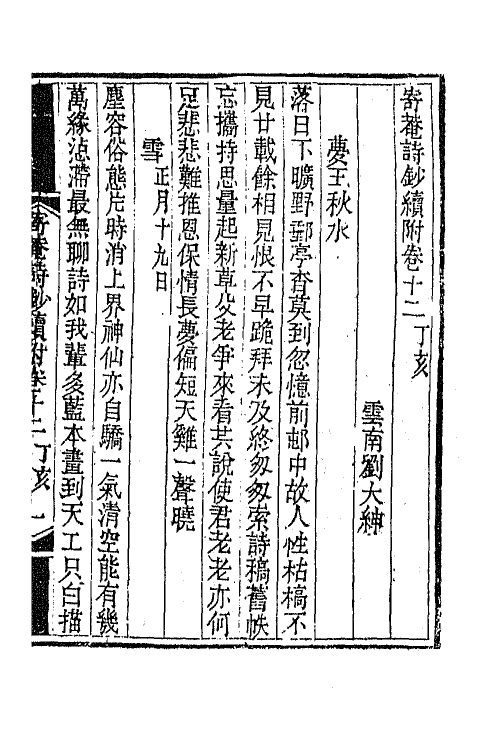 寄菴詩鈔續附卷十二 丁亥
雲南劉大紳
夢王秋水
落日下曠野郵亭杳莫到忽憶前邨中故人性枯槁不
見廿載餘相見恨不早跪拜未及終匆匆索詩稿舊帙
忘攜持思量起新草父老爭來看共說使君老老亦何
足悲悲難推恩保情長夢偏短天雞一聲曉
雪 正月十九日
塵容俗態片時消上界神仙亦自驕一氣清空能有幾
萬緣沾滯最無聊詩如我輩多藍本畫到天工只白描
寄菴詩鈔續附卷十二 丁亥 一